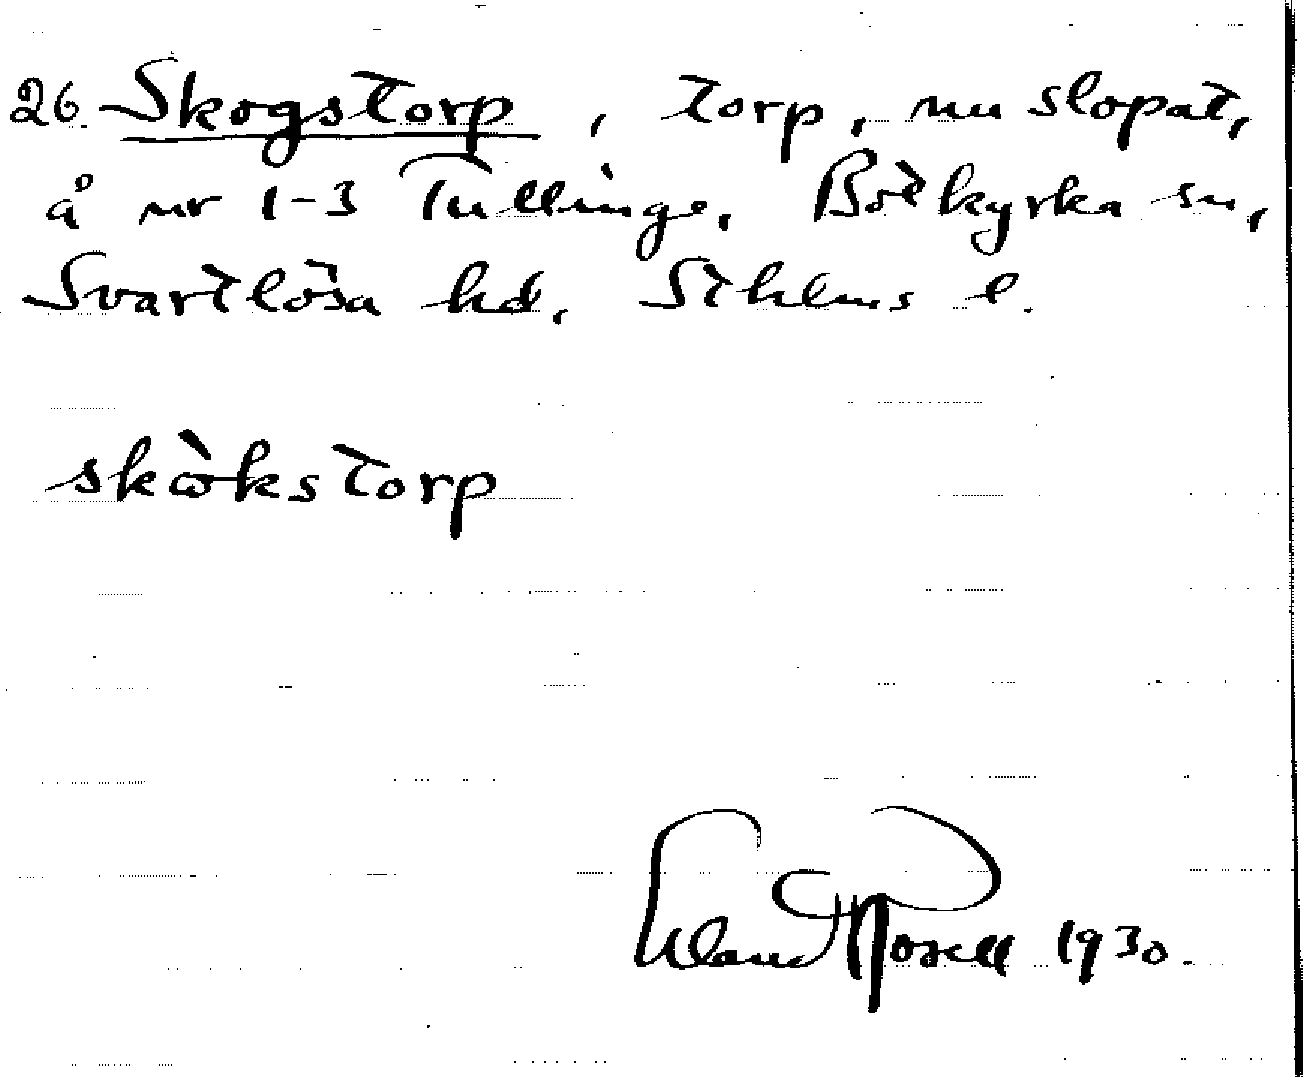 26. Skogstorp, torp, nu slopat,
å nr 1-3 Tullinge, Botkyrka sn,
Svartlösa hd, Sthlms l.
skòkstorp
Rosell 1930.